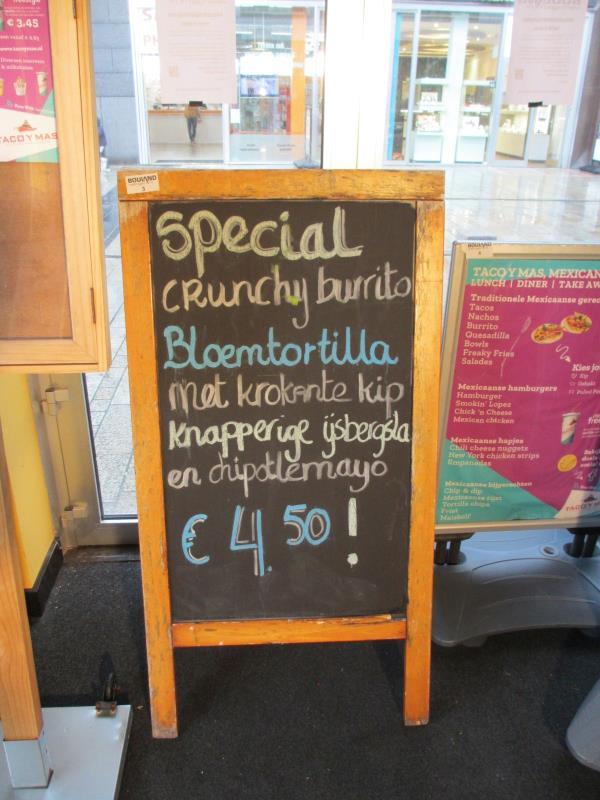 Special
crunchy burrito
Bloemtortilla
met krokante kip
knapperige ijsbergsla
en chipotlemayo
€ 4.50 !
BOULAND
3
€ 3.45
TACO Y MAS
TACO Y MAS, MEXICAN
LUNCH | DINER | TAKE AW
Traditionele Mexicaanse gerec
Tacos
Nachos
Burrito
Quesadilla
Bowls
Freaky Fries
Salades
Kies jo
Kip
Gehakt
Pulled Por
Mexicaanse hamburgers
Hamburger
Smokin' Lopez
Chick 'n Cheese
Mexican chicken
Mexicaanse hapjes
Chili cheese nuggets
New York chicken strips
Empanadas
Mexicaanse bijgerechten
Chip & dip
Mexicaanse rijst
Tortilla chips
Friet
Maiskolf
TACO Y MAS